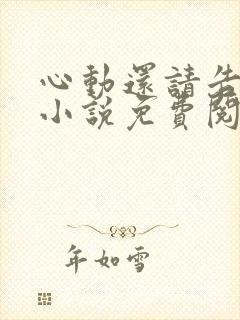 心動還請告
小說免費閱
年如雪